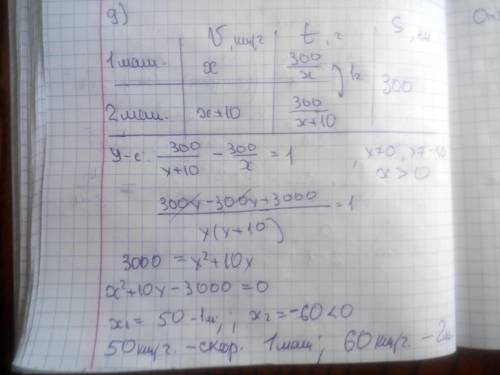 9)
V, км/г t, г S, км
1 маш. x 300/x 1г 300
2 маш. x+10 300/x+10
У-е: 300/x+10 - 300/x = 1 , x≠0, x≠-10
x>0
300x-300x+3000/x(x+10) = 1
3000 = x²+10x
x²+10x-3000=0
x₁= 50 -1м, ; x₂=-60<0
50км/г. -скор. 1маш; 60км/г -2м